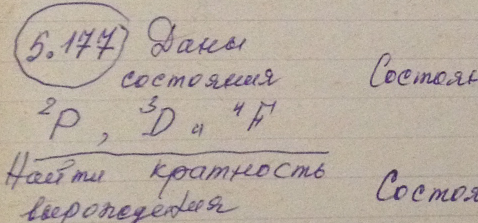 5.177 Даны
состояния Состоян
²P, ³D и ⁴F
Найти кратность
вырождения Состоя